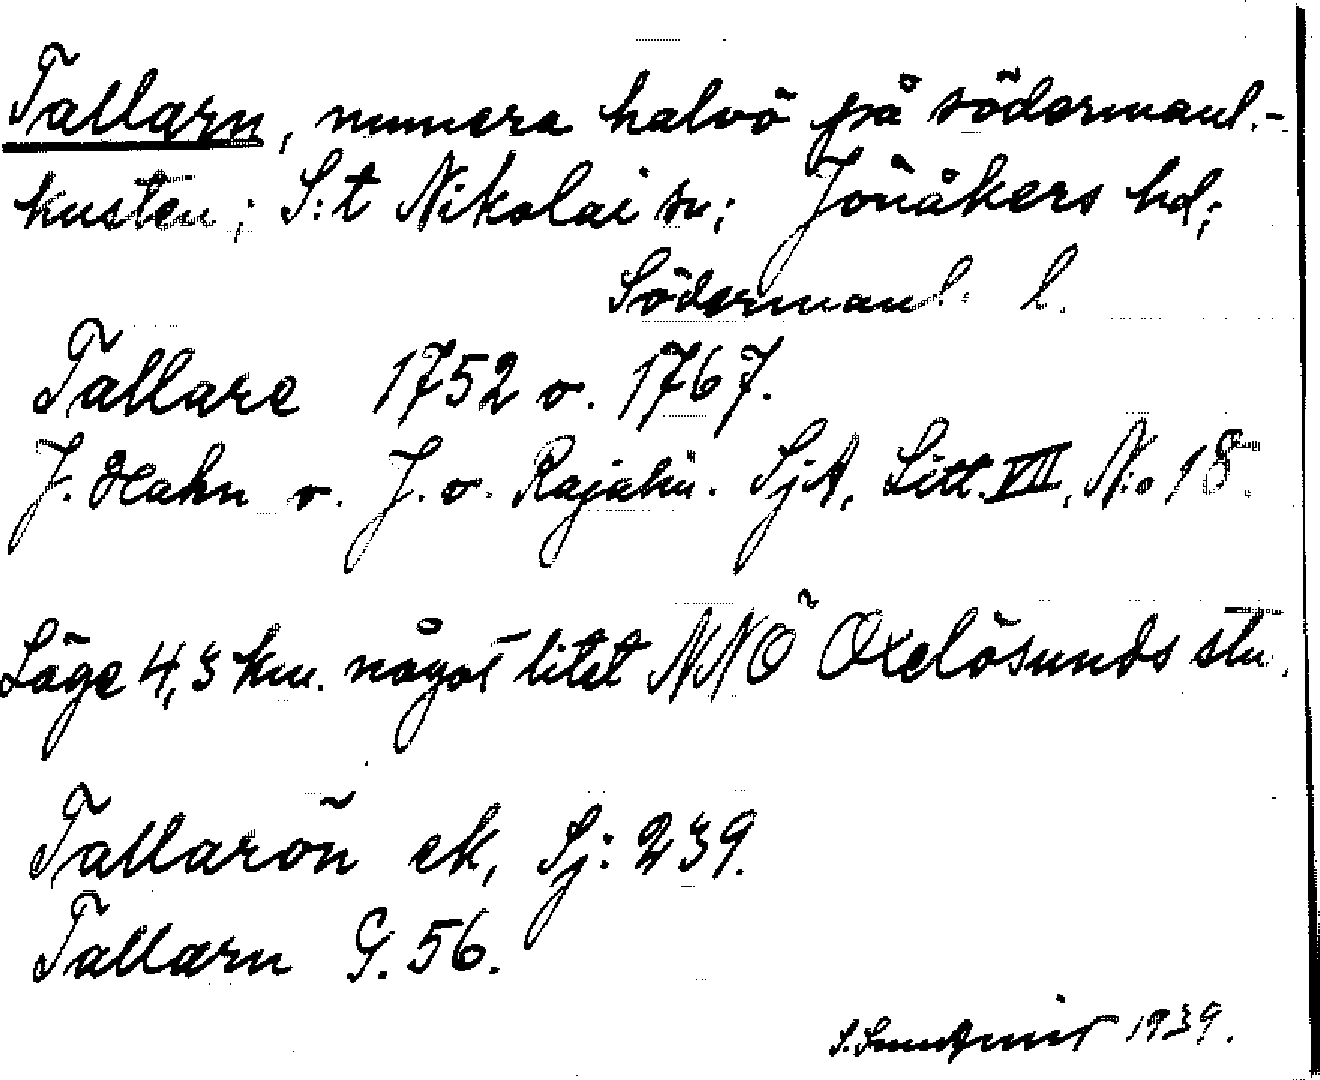 Tallarn, numera halvö på södermanl.-
kusten; S:t Nikolai sn; Jönåkers hd;
Södermanl. l.
Tallare 1752 o. 1767.
J. Hahn o. J. v. Rajalin. SjA, Litt. VII, N:o 18.
Läge 4,3 km. något litet NNÖ Oxelösunds stn.
Tallarön ek, Sj: 239.
Tallarn G. 56.
S. 1939.